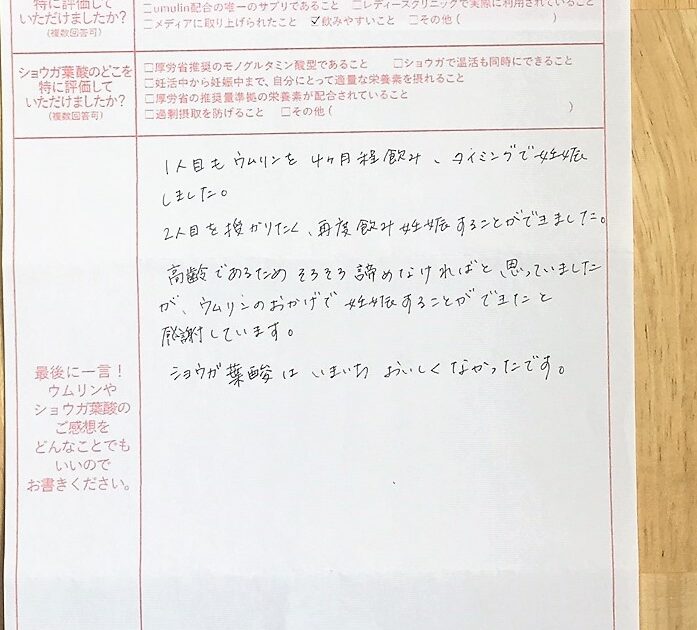 特に評価して
いただけましたか?
(複数回答可)
□umulin配合の唯一のサプリであること □レディースクリニックで実際に利用されていること
□メディアに取り上げられたこと ☑飲みやすいこと □その他( )
ショウガ葉酸のどこを
特に評価して
いただけましたか?
(複数回答可)
□厚労省推奨のモノグルタミン酸型であること □ショウガで温活も同時にできること
□妊活中から妊娠中まで、自分にとって適量な栄養素を摂れること
□厚労省の推奨量準拠の栄養素が配合されていること
□過剰摂取を防げること □その他( )
最後に一言!
ウムリンや
ショウガ葉酸の
ご感想を
どんなことでも
いいので
お書きください。
1人目もウムリンを4ヶ月程飲み、タイミングで妊娠
しました。
2人目を授かりたく、再度飲み妊娠することができました。
高齢であるためそろそろ諦めなければと思っていました
が、ウムリンのおかげで妊娠することができたと
感謝しています。
ショウガ葉酸はいまいちおいしくなかったです。